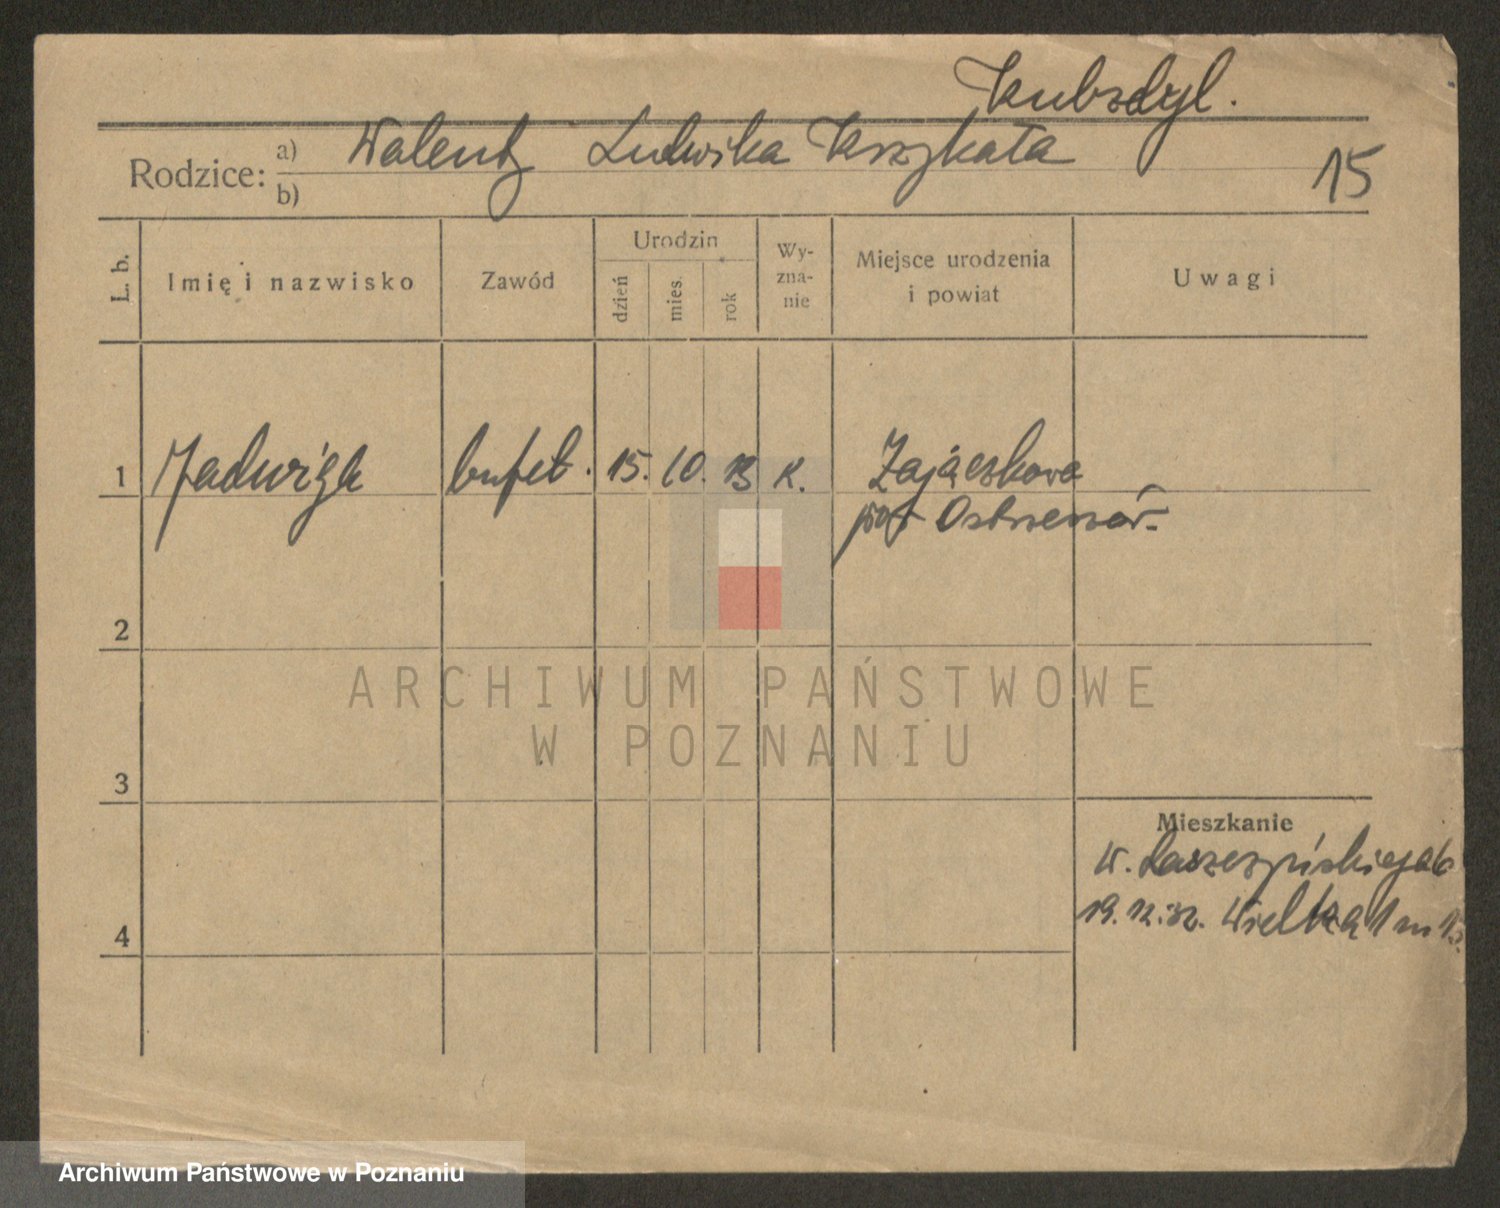 Kubzdyl.
Rodzice: a) Walenty Ludwika Kszkała
b)
15
L. b.
Imię i nazwisko
Zawód
Urodzin
dzień
mies.
rok
Wy-
zna-
nie
Miejsce urodzenia
i powiat
Uwagi
1 Jadwiga bufet. 15. 10. 13 K. Zajączkowa
pow Ostrzeszów.
2
3
4
Mieszkanie
19.12.32. Wielka 1 m 15.
ARCHIWUM PAŃSTWOWE
W POZNANIU
Archiwum Państwowe w Poznaniu